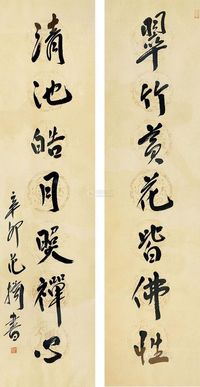 翠竹黄花皆佛性
清池皓月照禪心
辛卯 范揚書